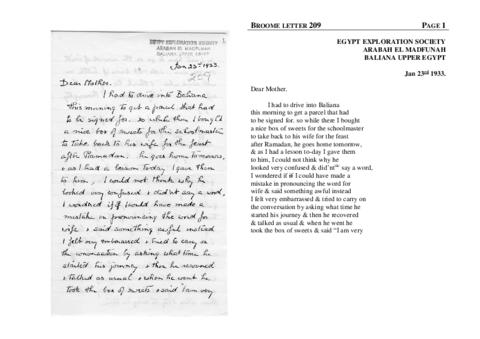 EGYPT EXPLORATION SOCIETY
ARABAH EL MADFUNAH
BALIANA UPPER EGYPT
Jan 23rd 1933.
209
Dear Mother.
I had to drive into Baliana
this morning to get a parcel that had
to be signed for. so while there I bought
a nice box of sweets for the schoolmaster
to take back to his wife for the feast
after Ramadan, he goes home tomorrow,
& as I had a lesson today I gave them
to him, I could not think why he
looked very confused & didn't say a word,
I wondered if I could have made a
mistake in pronouncing the word for
wife & said something awful instead
I felt very embarrassed & tried to carry on
the conversation by asking what time he
started his journey & then he recovered
& talked as usual & when he went he
took the box of sweets & said "I am very
BROOME LETTER 209 PAGE 1
EGYPT EXPLORATION SOCIETY
ARABAH EL MADFUNAH
BALIANA UPPER EGYPT
Jan 23rd 1933.
Dear Mother.
I had to drive into Baliana
this morning to get a parcel that had
to be signed for. so while there I bought
a nice box of sweets for the schoolmaster
to take back to his wife for the feast
after Ramadan, he goes home tomorrow,
& as I had a lesson to-day I gave them
to him, I could not think why he
looked very confused & did(nt)sic say a word,
I wondered if I could have made a
mistake in pronouncing the word for
wife & said something awful instead
I felt very embarrassed & tried to carry on
the conversation by asking what time he
started his journey & then he recovered
& talked as usual & when he went he
took the box of sweets & said "I am very